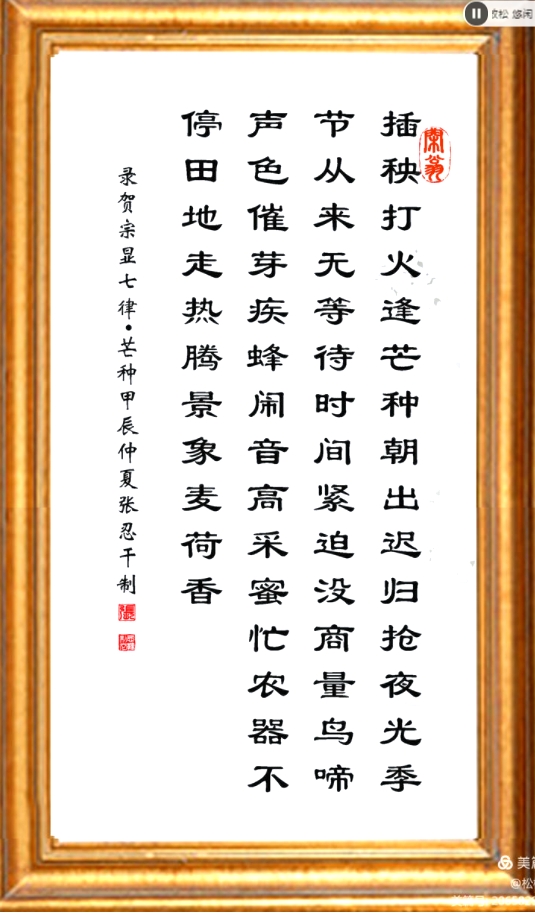 插秧打火逢芒种朝出迟归抢夜光季
节从来无等待时间紧迫没商量鸟啼
声色催芽疾蜂闹音高采蜜忙农器不
停田地走热腾景象麦荷香
录贺宗显七律•芒种甲辰仲夏张忍干制
悠闲
美篇